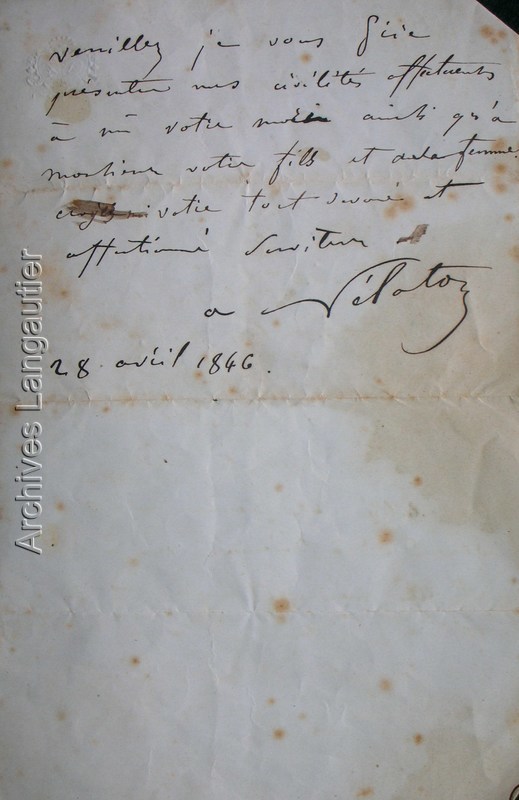 veuillez je vous prie
présenter mes civilités affectueuses
à votre ainsi qu'à
monsieur votre fils et de la femme
votre tout dévoué et
affectionné serviteur
a Nélaton
28 avril 1846.
Archives Langautier